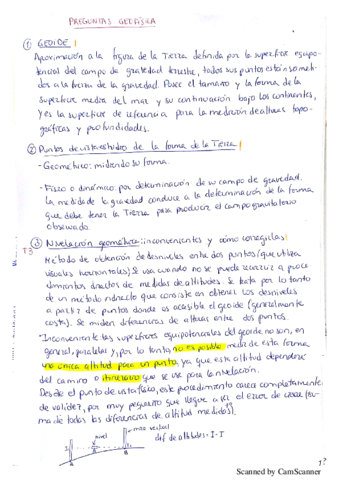 PREGUNTAS GEOFÍSICA
① GEOIDE
Aproximación a la figura de la Tierra definida por la superficie equipo-
tencial del campo de gravedad terrestre, todos sus puntos están some-
tidos a la fuerza de la gravedad. Posee el tamaño y la forma de la
superficie media del mar y su continuación bajo los continentes,
y es la superficie de referencia para la medición de alturas topo-
gráficas y profundidades.
② Puntos de vista estudio de la forma de la Tierra
- Geométrico: midiendo su forma.
- Físico o dinámico: por determinación de su campo de gravedad.
la medida de la gravedad conduce a la determinación de la forma
que debe tener la Tierra para producir el campo gravitatorio
observado.
T3 ③ Nivelación geométrica: inconvenientes y cómo corregirlas
Método de obtención de desniveles entre dos puntos (que utiliza
visuales horizontales). Se usa cuando no se puede recurrir a proce-
dimientos directos de medidas de altitudes. Se trata por lo tanto
de un método indirecto que consiste en obtener los desniveles
a partir de puntos donde es accesible el geoide (generalmente
costa). Se miden diferencias de alturas entre dos puntos.
· Inconvenientes: las superficies equipotenciales del geoide no son, en
general, paralelas y, por lo tanto, no es posible medir de esta forma
una única altitud para un punto, ya que esta altitud dependerá
del camino o itinerario que se use para la nivelación.
Desde el punto de vista físico, este procedimiento carece completamente
de validez, por muy pequeño que llegue a ser el error de cierre (su-
ma de todas las diferencias de altitud medidas).
nivel
mira vertical
dif de altitudes = I - I'
A
B
1
Scanned by CamScanner